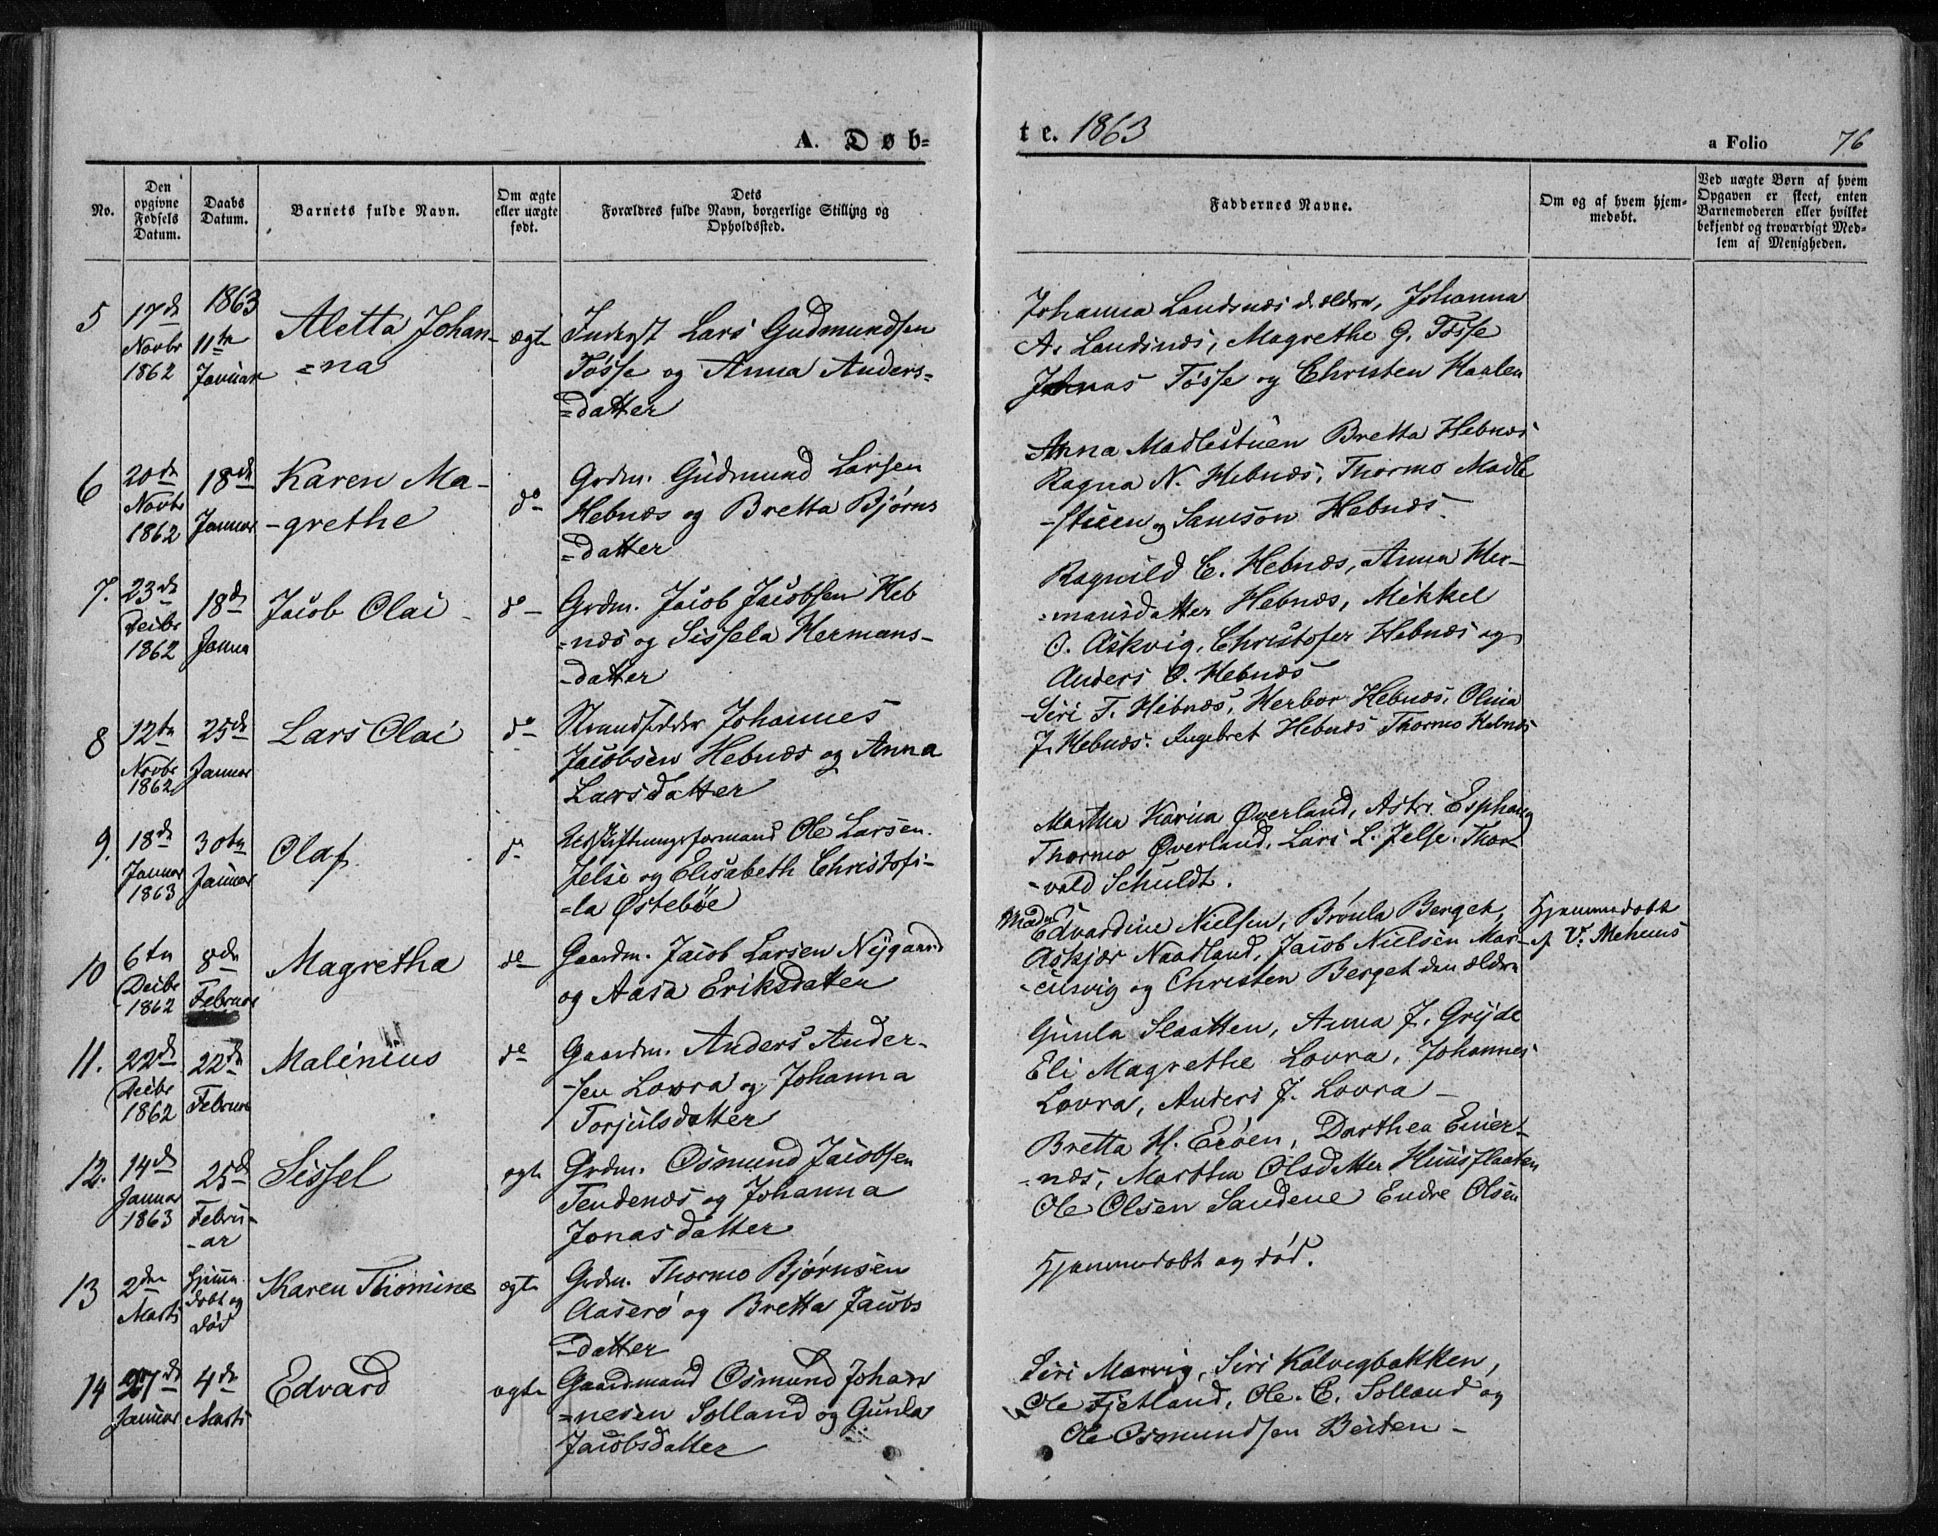 A. Døb-
te. 1863
a Folio 76
No.
Den opgivne Fødsels Datum.
Daabs Datum.
Barnets fulde Navn.
Om ægte eller uægte født.
Dets Forældres fulde Navn, borgerlige Stilling og Opholdssted.
Faddernes Navne.
Om og af hvem hjem-medøbt.
Ved uægte Børn af hvem Opgaven er skeet, enten Barnemoderen eller hvilket bekjendt og troværdigt Med-lem af Menigheden.
5
17de Novbr 1862
1863 11te Januar
Aletta Johan-
=na
ægte
Inderst Lars Gudmundsen
Tøsse og Anna Anders=
=datter
Johanna Landsnæs d. ældre, Johanna
A. Landsnæs, Magrethe G. Tøsse
Johnas Tøsse og Christen Haalen
6
20de Novbr 1862
18de Januar
Karen Ma-
-grethe
do-
Grdm. Gudmund Larsen
Hebnæs og Bretta Bjørns
=datter
Anna Madlestuen Bretta Hebnæs
Ragna N. Hebnæs, Thormo Madle
-stuen og Samson Hebnæs.
7.
23de Decbr 1862
18de Janua
Jacob Olai -
do-
Grdm. Jacob Jacobsen Heb
=næs og Sissela Hermans-
-datter
Ragnild E. Hebnæs, Anna Her-
=mansdatter Hebnæs, Mikkel
O. Askvig, Christofer Hebnæs og
Anders O. Hebnæs
8
12te Novbr 1862
25de Januar
Lars Olai
do
Strandsidder Johannes
Jacobsen Hebnæs og Anna
Larsdatter
Siri T. Hebnæs, Herbor Hebnæs, Olina
J. Hebnæs. Ingebret Hebnæs Thormo Hebnæs
9.
18de Januar 1863
30te Januar
Olaf.
do
Udskiftningsformand Ole Larsen.
Jelse og Elisabeth Christofi-
=la Østebøe
Martha Karina Øverland, Astri Esphaug
Thormo Øverland, Lars L. Jelse. Thor-
-vald Schuldt.
10
6te Decbr 1862
8de Februar
Magretha
do
Gaardm. Jacob Larsen Nygaard
og Aasa Eriksdatter
Mad. Edvardine Nielsen, Brønla Berget,
Askjær Naadland, Jacob Nielsen Mar-
-cusvig og Christen Berget den ældre
Hjemmedøbt
af V. Mehuus
11.
22de Decbr 1862
22de Februar
Malenius
do
Gaardm. Anders Ander-
-sen Lovra og Johanna
Torjulsdatter
Gunla Slaatten, Anna J. Gryde
Eli Magrethe Lovra, Johannes
Lovra, Anders J. Lovra -
12.
14de Januar 1863
25de Febru-ar
Sissel
ægte
Grdm. Osmund Jacobsen
Tendenæs og Johanna
Jonasdatter
Bretta H. Erøen, Dorthea Einer-
=næs, Martha Olsdatter Huusflaaten
Ole Olsen Sandene Endre Olsen
13
2den Marts
hjemmdøbt og død
Karen Thomine
ægte
Grdm. Thormo Bjørnsen
Aaserø og Bretta Jacobs
=datter
Hjemmedøbt og død.
14
27de Januar
4de Marts
Edvard
ægte
Gaardmand Osmund Johan
=nesen Solland og Gunla
Jacobsdatter
Siri Marvig, Siri Kalvegbakken,
Ole Fjetland, Ole. E. Solland og
Ole Osmundsen Beiten -